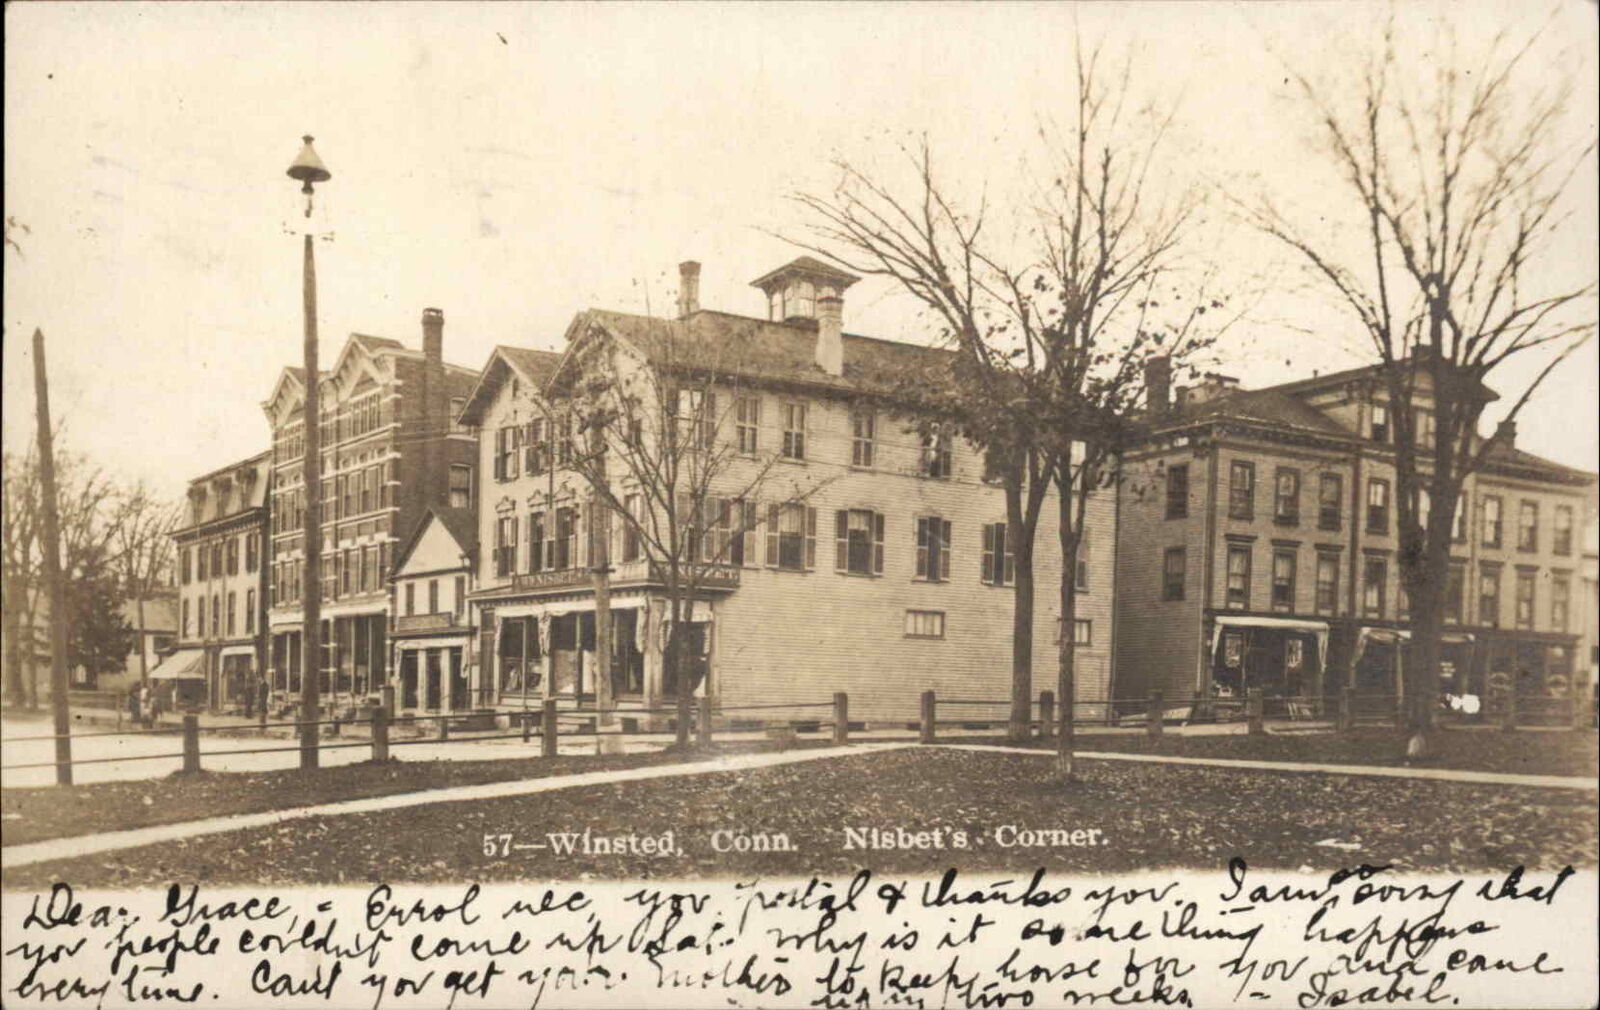 NISBET
57—Winsted, Conn. Nisbet's Corner.
Dear Grace, - Errol rec. your postal & thanks you. I am so sorry that
you people couldn't come up Sat. Why is it something happens
every time. Can't you get your mother to keep house for you and come
up in two weeks. - Isabel.